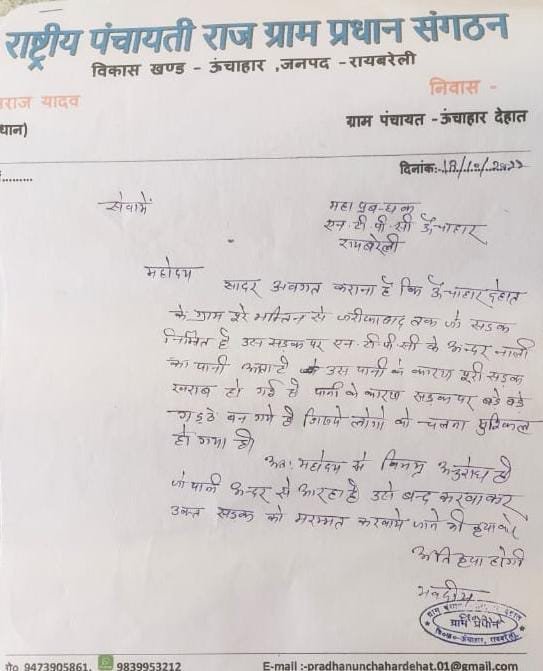 राष्ट्रीय पंचायती राज ग्राम प्रधान संगठन
विकास खण्ड - ऊंचाहार ,जनपद -रायबरेली
राज यादव
निवास -
धान)
ग्राम पंचायत -ऊंचाहार देहात
दिनांक:-18/10/2022
सेवामें
महाप्रबन्धक
एन.टी.पी.सी ऊँचाहार
रायबरेली
महोदय
सादर अवगत कराना है कि ऊँचाहार देहात
के ग्राम पूरे भक्तिन से फरीदाबाद तक जो सडक
निर्मित है उस सडक पर एन.टी.पी.सी के अन्दर नाली
का पानी आता है उस पानी के कारण पूरी सडक
खराब हो गई है पानी के कारण सडक पर बडे बडे
गड्ढे बन गये है जिससे लोगो को चलना मुश्किल
हो गया है।
अतः महोदय से विनम्र अनुरोध है
जो पानी अन्दर से आ रहा है उसे बन्द करवाकर
उक्त सडक को मरम्मत करवाये जाने की कृपा करे
अति कृपा होगी
भवदीय
ग्राम प्रधान
मो० 9473905861, 9839953212
E-mail :-pradhanunchahardehat.01@gmail.com